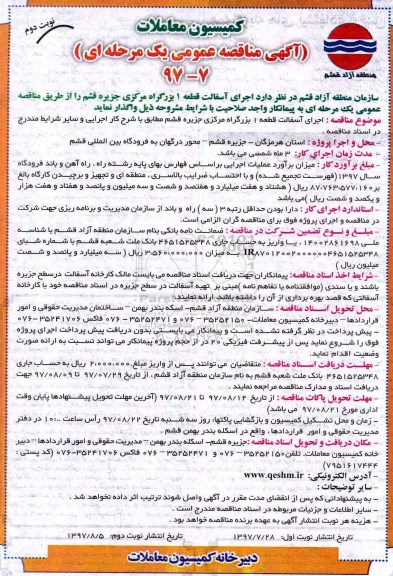 نوبت دوم
کمیسیون معاملات
(آگهی مناقصه عمومی یک مرحله ای)
۷-۹۷
منطقه آزاد قشم
سازمان منطقه آزاد قشم در نظر دارد اجرای آسفالت قطعه ۱ بزرگراه مرکزی جزیره قشم را از طریق مناقصه
عمومی یک مرحله ای به پیمانکار واجد صلاحیت با شرایط مشروحه ذیل واگذار نماید.
موضوع مناقصه : اجرای آسفالت قطعه ۱ بزرگراه مرکزی جزیره قشم مطابق با شرح کار اجرایی و سایر شرایط مندرج
در اسناد مناقصه .
- محل و اجرا پروژه : استان هرمزگان – جزیره قشم – محور درگهان به فرودگاه بین المللی قشم
- مدت زمان اجرای کار: ۳ ماه شمسی می باشد.
- مبلغ برآورد کار : میزان برآورد عملیات اجرایی براساس فهارس بهای پایه رشته راه ، راه آهن و باند فرودگاه
سال ۱۳۹۷ (فهرست تجمیع شده) و با احتساب ضرایب بالاسری ، منطقه ای و تجهیز و برچیدن کارگاه بالغ
بر ۸۷،۷۶۳،۵۷۷،۱۶۰ ریال ( هشتاد و هفت میلیارد و هفتصد و شصت و سه میلیون و پانصد و هفتاد و هفت هزار
و یکصد و شصت ریال )می باشد
- استاندارد اجرای کار : دارا بودن حداقل رتبه ۳ ( سه ) راه و باند از سازمان مدیریت و برنامه ریزی جهت شرکت
در مناقصه و اجرای پروژه فوق برای مناقصه گران الزامی است.
- مبلغ و نوع تضمین شرکت در مناقصه : ضمانت نامه بانکی بنام سازمان منطقه آزاد قشم با شناسه
ملی ۱۴۰۰۲۸۶۱۶۹۸ ، یا واریز به حساب جاری ۴۶۵۱۵۲۵۳۴۸ بانک ملت شعبه قشم با شماره شبای
بـه میزان ۳،۵۶۰،۰۰۰،۰۰۰ ریال ( سه میلیارد و پانصد و شصت
میلیون ریال )
- شرایط اخذ اسناد مناقصه: پیمانکاران جهت دریافت اسناد مناقصه می بایست مالک کارخانه آسفالت درسطح جزیره
باشند و یا سندی (موافقتنامه یا تفاهم نامه) مبنی بر تهیه آسفالت در سطح جزیره در اسناد مناقصه خود با کارخانه
آسفالتی که قصد بهره برداری از آن را داشته باشد، ارائه نمایند.
- محل تحویل اسناد مناقصه : سازمان منطقه آزاد قشم- اسکله بندر بهمن – ساختمان مدیریت حقوقی و امور
قراردادها – دبیرخانه کمیسیون معاملات- ۳۵۲۵۲۱۵۰-۰۷۶ و ۳۵۲۵۲۴۷۱-۰۷۶ فاکس ۳۵۲۴۱۷۰۶-۰۷۶
- پیش پرداخت در نظر گرفته نشده است و پیمانکار می بایستی بدون دریافت پیش پرداخت اجرای پروژه
فوق را شروع نماید پس از پیشرفت فیزیکی ۲۰ در از حجم پروژه پیمانکار می تواند نسبت به ارائه صورت
وضعیت اقدام نماید.
- مهلت دریافت اسناد مناقصه : متقاضیان می توانند پس از واریز مبلغ ۲،۰۰۰،۰۰۰ ریال به حساب جاری
۴۶۵۱۵۲۵۳۴۸ بانک ملت شعبه قشم به نام سازمان منطقه آزاد قشم ، از تاریخ ۹۷/۰۷/۲۹ تا ۹۷/۰۸/۰۹ جهت
دریافت اسناد و مدارک مناقصه مراجعه نمایند .
- مهلت تحویل پاکات مناقصه : از تاریخ ۹۷/۰۸/۱۲ تا ۹۷/۰۸/۲۱ (آخرین مهلت تحویل پیشنهادها پایان وقت
اداری مورخ ۹۷/۰۸/۲۱ می باشد)
- زمان و محل تشکیل کمیسیون و بازگشایی پاکتها: روز سه شنبه تاریخ ۹۷/۰۸/۲۲ رأس ساعت ۱۰،۰۰ در دفتر
مدیریت حقوقی و امور قراردادها، واقع در اسکله بندر بهمن قشم .
- مکان دریافت و تحویل اسناد مناقصه :جزیره قشم- اسکله بندر بهمن – مدیریت حقوقی و امور قراردادها – دبیر
خانه کمیسیون معاملات. تلفن ۳۵۲۵۲۱۵۰-۰۷۶ و ۳۵۲۵۲۴۷۱-۰۷۶ فاکس ۳۵۲۴۱۷۰۶-۰۷۶ (کد پستی :
۷۹۵۱۶۱۷۴۴۴)
- آدرس الکترونیکی: www.qeshm.ir
- سایر توضیحات :
- به پیشنهاداتی که پس از انقضای مدت مقرر در آگهی واصل شوند ترتیب اثر داده نخواهد شد .
- سایر اطلاعات و جزئیات مربوطه در اسناد مناقصه مندرج است .
- هزینه هر نوبت انتشار آگهی به عهده برنده مناقصه خواهد بود .
تاریخ انتشار نوبت اول: ۱۳۹۷/۷/۲۸ تاریخ انتشار نوبت دوم: ۱۳۹۷/۸/۵
دبیرخانه کمیسیون معاملات